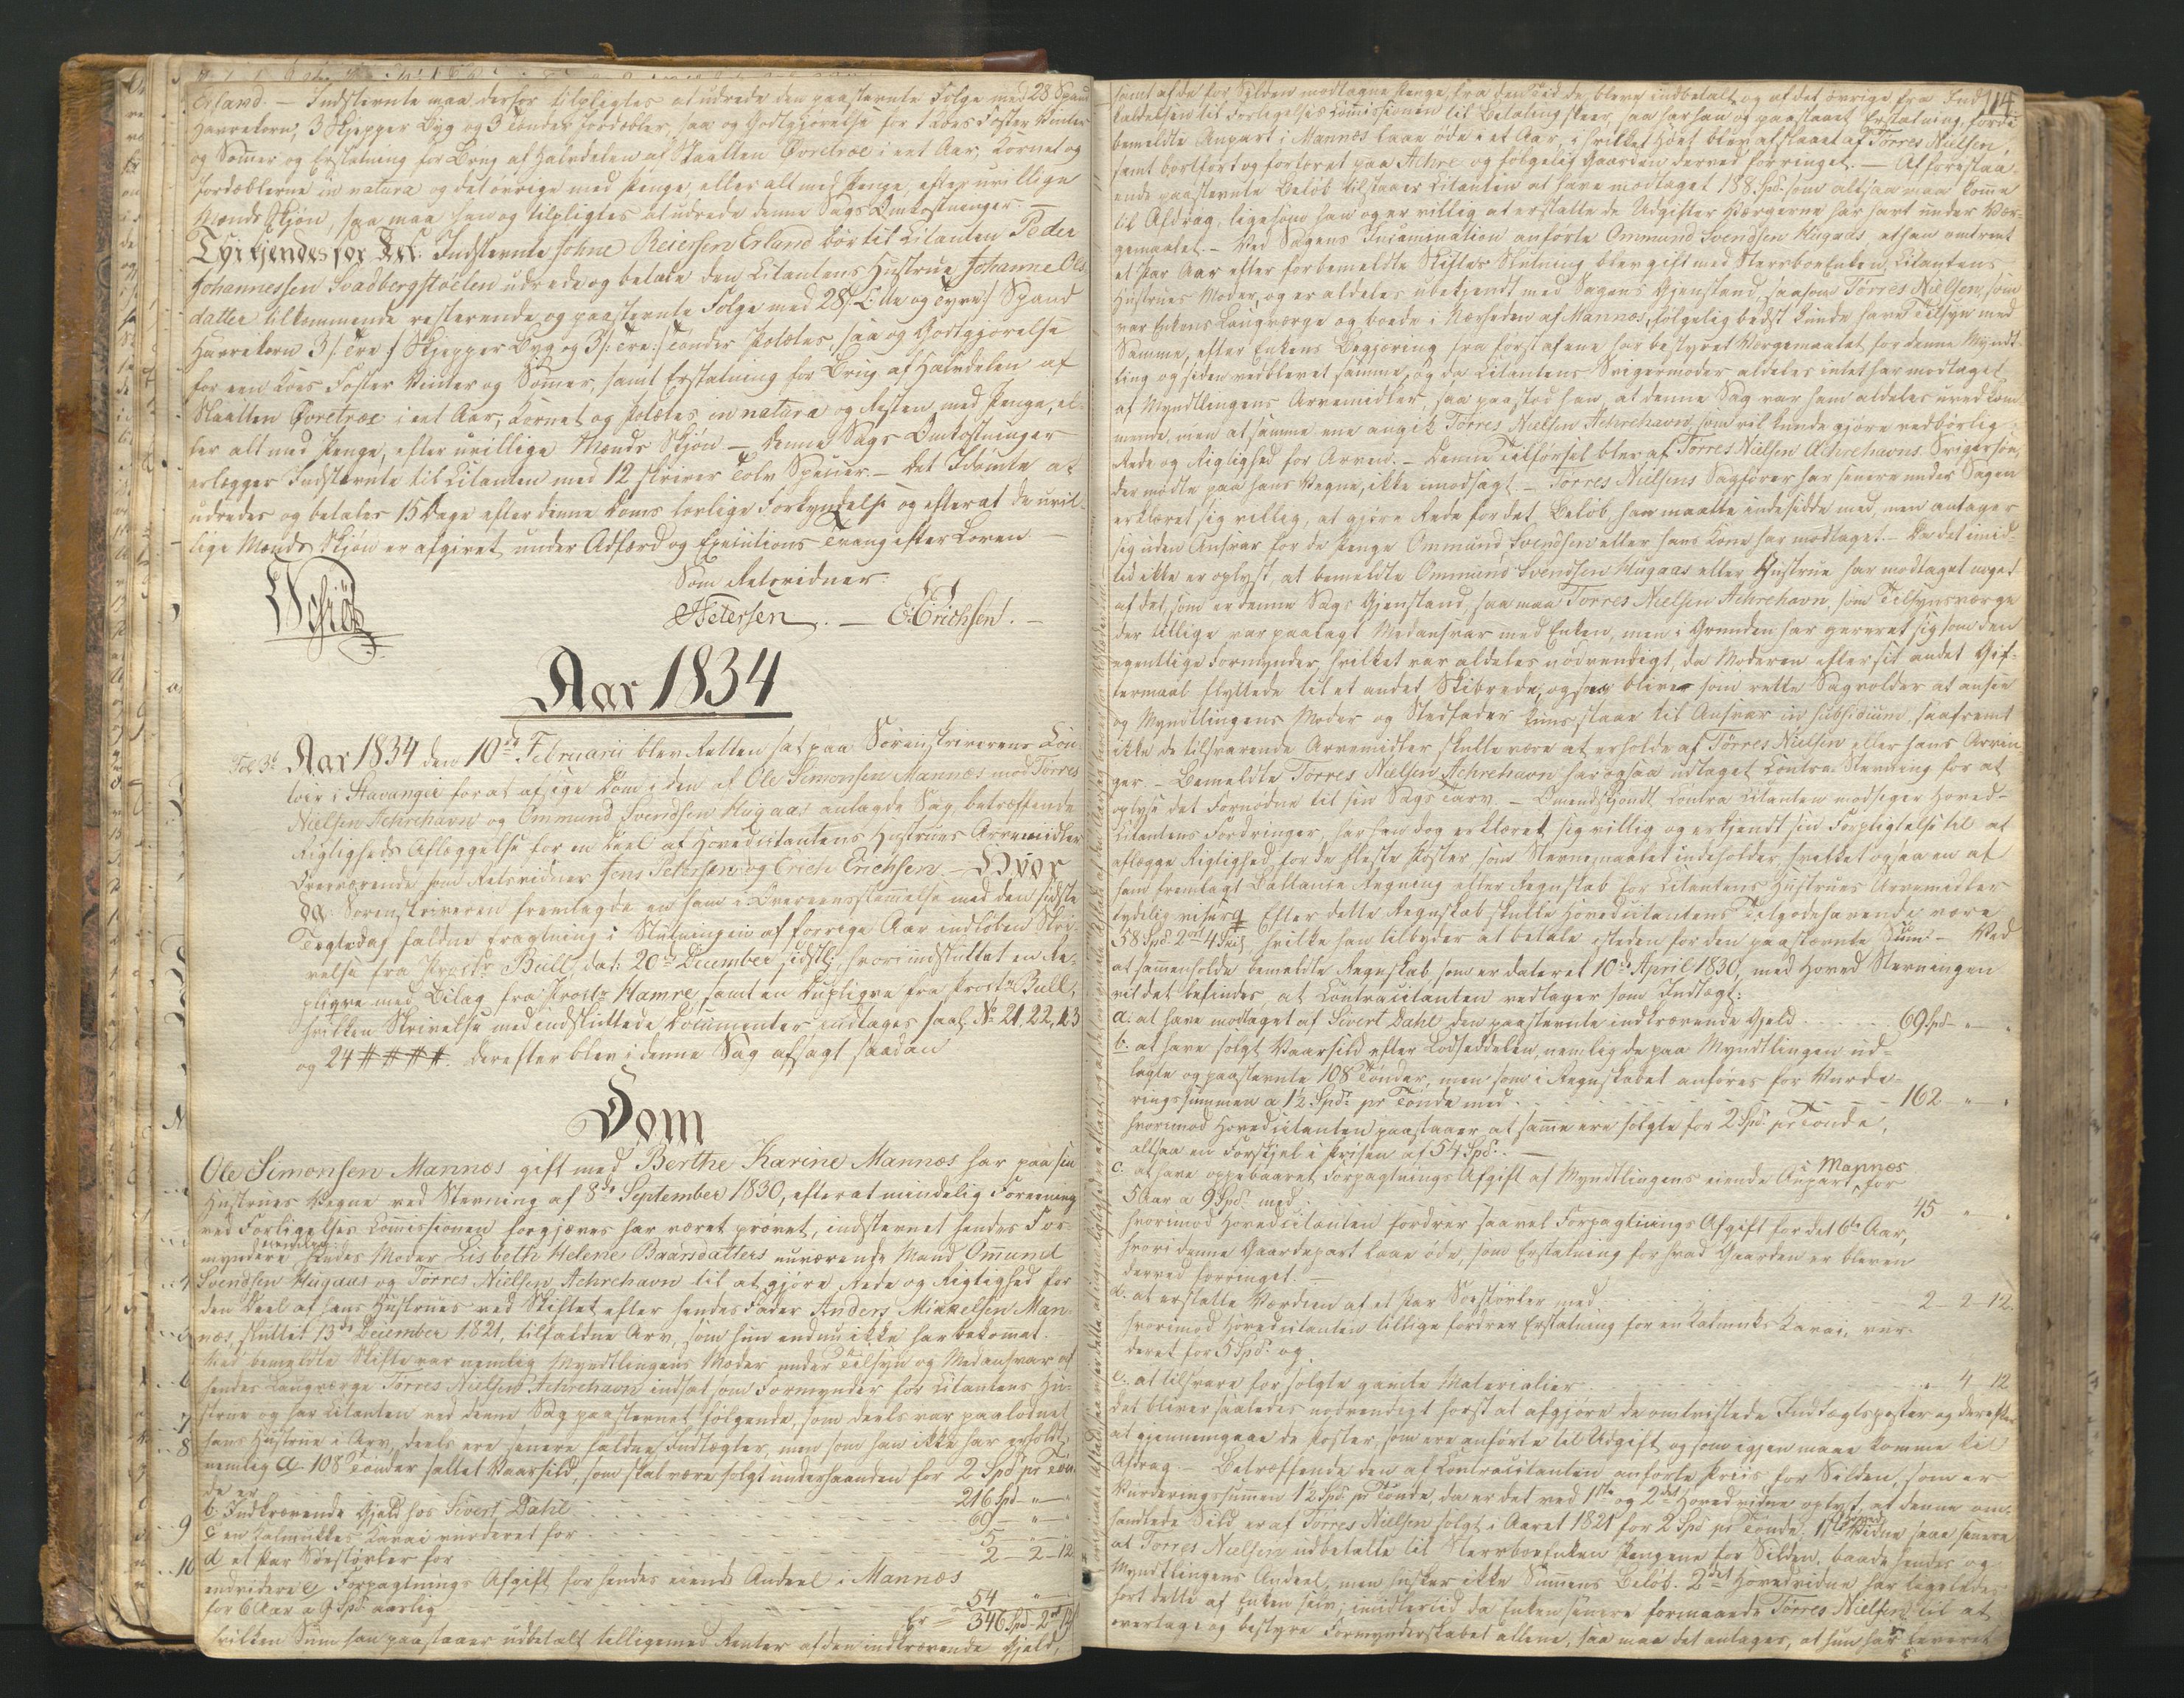 Erland. – Indstevnte maa derfor tilpligtes at udrede den paastevnte Folge med 28 Spand
Havrekorn, 3 Skjepper Byg og 3 Tønder Jordæbler, saa og Godtgjørelse for 1 Koes Foster Vinter
og Sommer og Erstatning for Brug af Halvdelen af Slaatten Øvretræe i eet Aar, Kornet og
Jordæblerne in natura og det øvrige med Penge, eller alt med Penge, efter uvillige
Mænds Skjøn, saa maa han og tilpligtes at udrede denne Sags Omkostninger. –
Thi kjendes for Ret: Indstevnte Johne Reiersen Erland bør til Citanten Peder
Johannessen Svadbergstøelen udrede og betale den Citantens Hustrue Johanne Ols
datter tilkommende resterende og paastevnte Folge med 28 /: Otte og Tyve :/ Spand
Havrekorn 3 /: Tre :/ Skjepper Byg og 3 /: Tre :/ Tønder Potetes, saa og Godtgjørelse
for een Koes Foster Vinter og Sommer, samt Erstatning for Brug af Halvdelen af
Slaatten Øvretræe i eet Aar, Kornet og Potetes in natura og Resten med Penge, el-
ler alt med Penge, efter uvillige Mænds Skjøn – Denne Sags Omkostninger
erlægger Indstevnte til Citanten med 12 skriver Tolv Specier. – Det Idømte at
udredes og betales 15 Dage efter denne Doms lovlige Forkyndelse og efterat de uvil-
lige Mænds Skjøn er afgivet, under Adfærd og Executions Tvang efter Loven –
Som Retsvidner:
Schiøtz
JPetersen. – E: Erichsen. –
Aar 1834
Aar 1834 den 10de Februarii blev Retten sat paa Sorenskriverens Con-
toir i Stavanger for at afsige Dom i den af Ole Simonsen Mannæs mod Tørres
Nielsen Aehrehavn og Ommund Svendsen Hugaas anlagde Sag, betræffende
Rigtigheds Aflæggelse for en Deel af Hovedcitantens Hustrues Arvemidler
Overværende som Retsvidner Jens Petersen og Erich Erichsen. – Hvor
da: Sorenskriveren fremlagde en ham i Overeensstemmelse med den sidste
Tegtedag faldne Fragtning i Slutningen af forrige Aar indløben Skri-
velse fra Procr Bull, dat: 20de December sidstl:, hvori indsluttet en Re-
pliqve med Bilag fra Procr Hamre, samt en Dupliqve fra Procr Bull,
hvilken Skrivelse med indsluttede Documenter indtages saal. No 21, 22, 23
og 24 # # # #. Derefter blev i denne Sag afsagt saadan
Dom
Ole Simonsen Mannæs gift med Berthe Karine Mannæs har paa sin
Hustrues Vegne ved Stevning af 8de September 1830, efterat mindelig Foreening
ved Forligelses Commissionen forgjæves har været prøvet, indstevnet hendes For-
myndere nemlig hendes Moder Lisbeth Helene Baarsdatters nuværende Mand Ommund
Svendsen Hugaas og Tørres Nielsen Aehrehavn til at gjøre Rede og Rigtighed for
den Deel af hans Hustrues ved Skiftet efter hendes Fader Anders Mikkelsen Man-
næs, sluttet 13de December 1821, tilfaldne Arv, som hun endnu ikke har bekommet.
Ved bemeldte Skifte var nemlig Myndtlingens Moder under Tilsyn og Medansvar af
hendes Laugværge Tørres Nielsen Aehrehavn indsat som Formynder for Citantens Hu-
strue og har Citanten ved denne Sag paastevnet følgende, som deels var paalodnet
hans Hustrue i Arv, deels ere senere faldne Indtægter, men som han ikke har erholdt,
nemlig a. 108 Tønder saltet Vaarsild, som skal være solgt underhaanden for 2 Spd pr Tøn-
de er 216 Spd – " – "
b. Indkrævende Gjeld hos Sivert Dahl 69 – " – "
c en Kalmukkes Kavai vurderet for 5 – " – "
d et Par Søestøvler for 2 – 2 – 12
endvidere e. Forpagtnings Afgift for hendes eiende Andeel i Mannæs
for 6 Aar a 9 Spd aarlig 54 – "
Er = 346 Spd 2 12
hvilken Sum han paastaaer udbetalt tilligemed Renter af den indkrævende Gjeld,
114
samt af de for Silden modtagne Penge, fra den Tid de bleve indbetalt og af det øvrige fra Ind-
kaldelsen til Forligelses Commissionen til Betaling skeer, saa har han og paastaaet Erstatning, fordi
bemeldte Anpart i Mannæs laae øde i et Aar, i hvilket Høet blev afslaaet af Tørres Nielsen,
samt bortført og forforet paa Aehre og følgelig Gaarden derved forringet. – Af forestaa-
ende paastevnte Beløb tilstaaer Citanten at have modtaget 188 Spd. som altsaa maa komme
til Afdrag, ligesom han og er villig at erstatte de Udgifter Værgerne har havt under Vær-
gemaalet. – Ved Sagens Incamination anførte Ommund Svendsen Hugaas, at han omtrent
et Par Aar efter forbemeldte Skiftes Slutning blev gift med Stervboe Enken, Citantens
Hustrues Moder, og er aldeles ubekjendt med Sagens Gjenstand, saasom Tørres Nielsen, som
var Enkens Laugværge og boede i Nærheden af Mannæs, følgelig bedst kunde have Tilsyn med
Samme, efter Enkens Begjæring fra først af ene har bestyret Værgemaalet for denne Myndt-
ling og siden vedblevet samme, og da Citantens Svigermoder aldeles intet har modtaget
af Myndtlingens Arvemidler, saa paastod han, at denne Sag var ham aldeles uvedkom-
mende, men at samme ene angik Tørres Nielsen Aehrehavn, som vil kunde gjøre vedbørlig
Rede og Rigtighed for Arven. – Denne Tilførsel blev af Tørres Nielsen Aehrehavns Svigersøn,
der mødte paa hans Vegne, ikke imodsagt. – Tørres Nielsens Sagfører har senere under Sagen
erklæret sig villig, at gjøre Rede for det Beløb, han maatte indesidde med, men antager
sig uden Ansvar for de Penge Ommund Svendsen eller hans Kone har modtaget. – Da det imid-
tid ikke er oplyst, at bemeldte Ommund Svendsen Hugaas eller Hustrue har modtaget noget
af det, som er denne Sags Gjenstand, saa maa Tørres Nielsen Aehrehavn, som Tilsynsværge
der tillige var paalagt Medansvar med Enken, men i Grunden har gereret sig som den
egentlige Formynder, hvilket var aldeles nødvendigt, da Moderen efter sit andet Gif-
termaal flyttede til et andet Skibrede, ogsaa bliver som rette Sagvolder at ansee
og Myndtlingens Moder og Stedfader kuns staae til Ansvar in subsidium, saafremt
ikke de tilsvarende Arvemidler skulle være at erholde af Tørres Nielsen eller hans Arvin-
ger. – Bemeldte Tørres Nielsen Aehrehavn har ogsaa udtaget Contra Stevning for at
oplyse det Fornødne til sin Sags Tarv. – Omendskjøndt Contra Citanten modsiger Hoved-
citantens Fordringer, har han dog erklæret sig villig og erkjendt sin Forpligtelse til at
aflægge Rigtighed for de fleste Poster som Stevnemaalet indeholder, hvilket ogsaa en af
ham fremlagt Ballance Regning eller Regnskab for Citantens Hustrues Arvemidler
tydelig viser. Efter dette Regnskab skulle Hovedcitantens Tilgodehavende være
58 Spd 2 ort 4 s, hvilke han tilbyder at betale isteden for den paastævnte Sum. – Ved
at sammenholde bemeldte Regnskab som er dateret 10de April 1830, med Hoved Stevningen
vil det befindes, at Contracitanten vedtager som Indtægt:
a. at have modtaget af Sivert Dahl den paastevnte indkrævende Gjeld 69 Spd – " – "
b. at have solgt Vaarsild efter Lodseddelen, nemlig de paa Myndtlingen ud-
lagte og paastevnte 108 Tønder, men som i Regnskabet anføres for Vurde-
ringssummen a 1½ Spd: pr Tønde med 162 – " – "
hvorimod Hovedcitanten paastaaer, at samme ere solgte for 2 Spd pr Tønde,
altsaa en Forskjel i Prisen af 54 Spd. –
c. at have oppebaaret Forpagtnings Afgift af Myndtlingens eiende Anpart i Mannæs for
5 Aar a 9 Spd med 45 " "
hvorimod Hovedcitanten fordrer saavel Forpagtnings Afgift for det 6te Aar,
hvori denne Gaardepart laae øde, som Erstatning for hvad Gaarden er bleven
derved forringet. –
d. at erstatte Værdien af et Par Søestøvler med 2 – 2 – 12.
hvorimod Hovedcitanten tillige fordrer Erstatning for en Kalmuks Kavai, vur-
deret for 5 Spd: og
e. at tilsvare for solgte gamle Materialier " 4 12
Det bliver saaledes nødvendigt først at afgjøre de omtvistede Indtægtsposter og derefter
at gjennemgaae de Poster, som ere anførte til Udgift og som igjen maae komme til
Afdrag. – Betræffende den af Contracitanten anførte Priis for Silden, som er
Vurderingssummen 1½ Spd pr Tønde, da er det ved 1ste og 2det Hovedvidne oplyst, at denne om-
handlede Sild er af Tørres Nielsen solgt i Aaret 1821 for 2 Spd pr Tønde, 1ste Hovedvidne saae senere
at Tørres Nielsen udbetalte til Stervboe Enken Pengene for Silden, baade hendes og
Myndtlingens Andeel, men husker ikke Summens Beløb. 2det Hovedvidne har ligeledes
hørt dette af Enken selv; imidlertid da Enken senere formaaede Tørres Nielsen til at
overtage og bestyre Formynderskabet allene, saa maa det antages, at hun har leveret